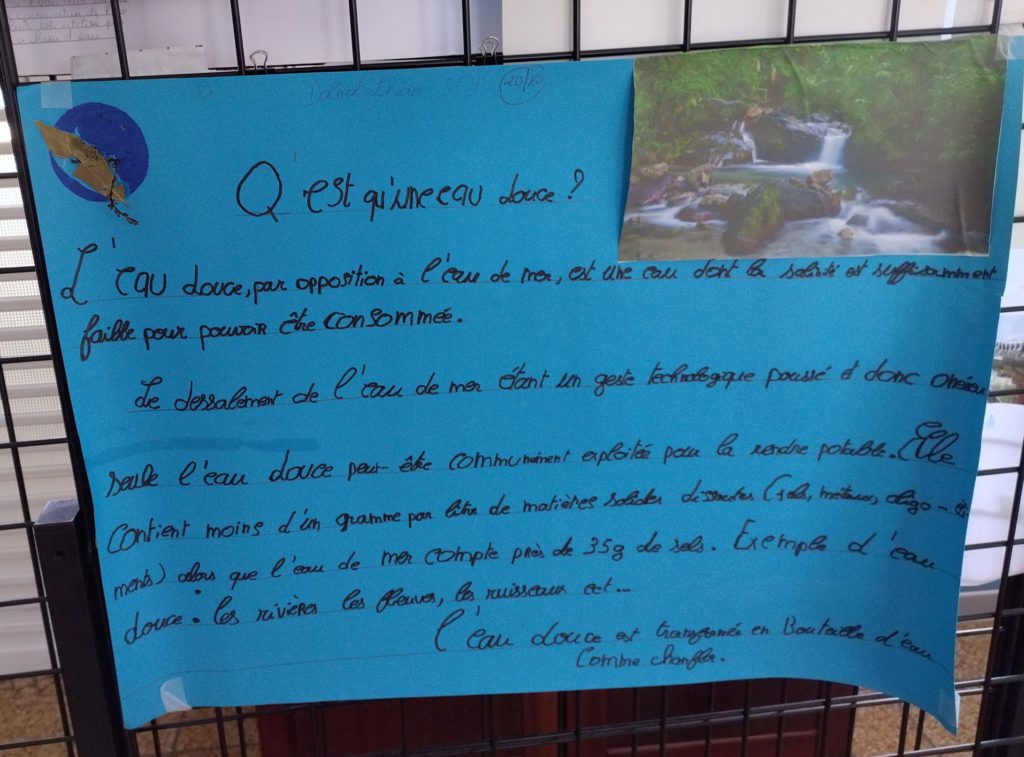 20/20
Q'est qu'une eau douce ?
L'eau douce, par opposition à l'eau de mer, est une eau dont la salinité est suffisamment
faible pour pouvoir être consommée.
Le dessalement de l'eau de mer étant un geste technologique poussé et donc onéreux
seule l'eau douce peut être communément exploitée pour la rendre potable. Elle
contient moins d'un gramme par litre de matières solides dissoutes (sels, métaux, oligo-élé
ments) alors que l'eau de mer compte près de 35g de sels. Exemple d'eau
douce : les rivières les fleuves, les ruisseaux ect...
l'eau douce est transformée en Bouteille d'eau
comme